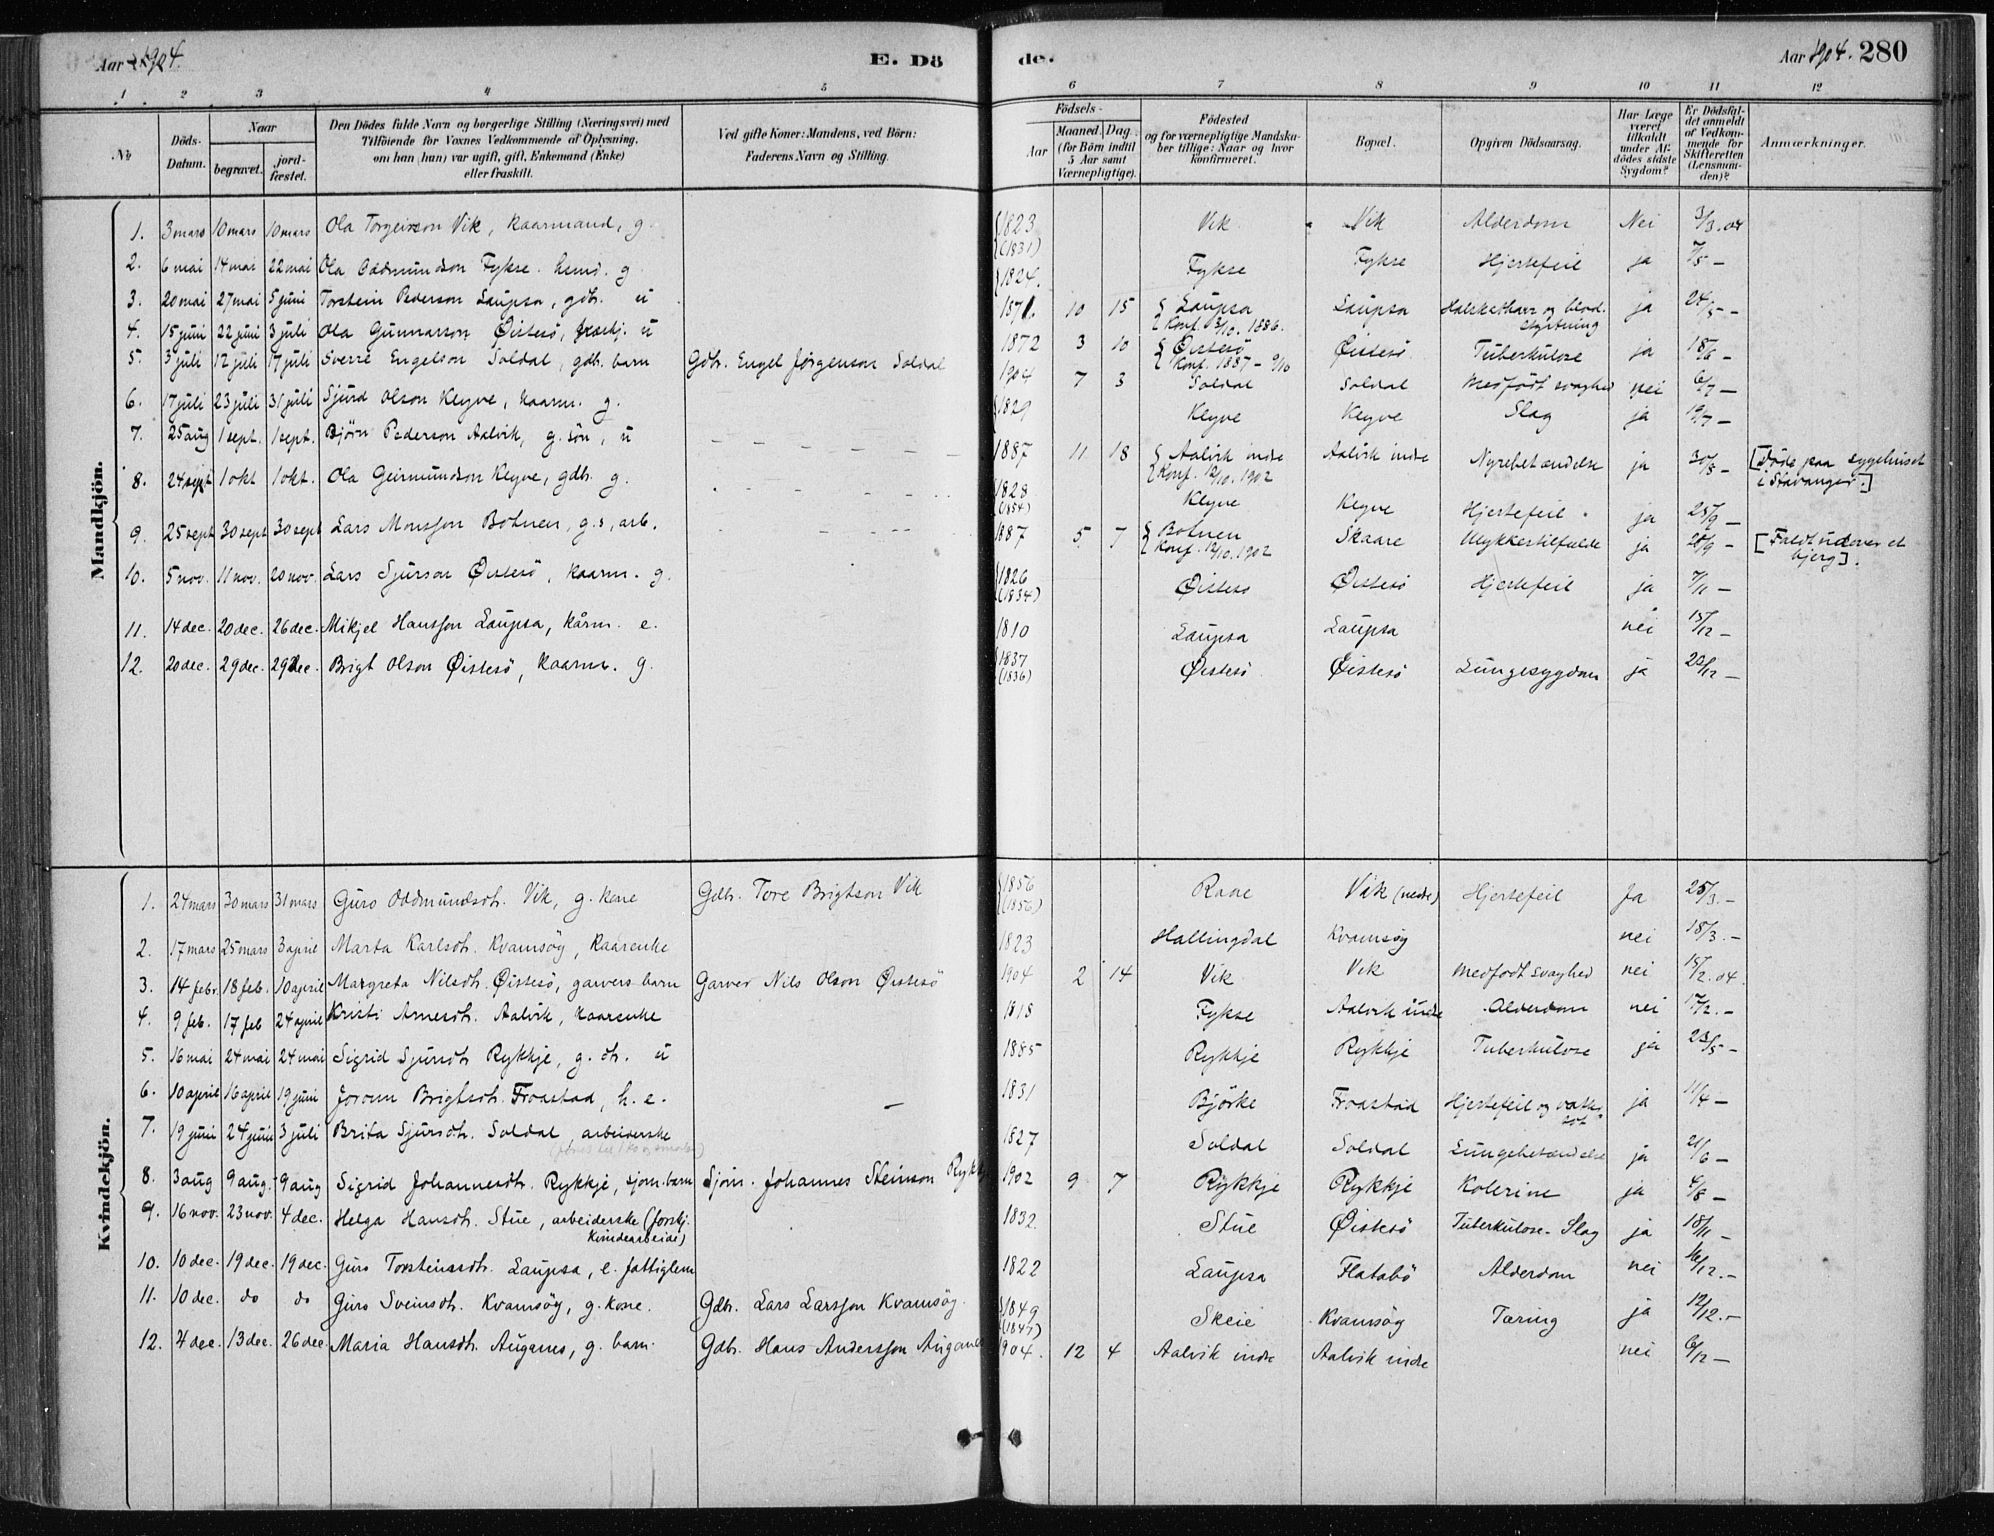 Aar 1904.
E. Dö
de.
Aar 1904. 280
1 2 3 4 5 6 7 8 9 10 11 12
No
Döds-Datum.
Naar
begravet. jord-fæstet.
Den Dödes fulde Navn og borgerlige Stilling (Næringsvei) med
Tilföiende for Voxnes Vedkommende af Oplysning,
om han (hun) var ugift, gift, Enkemand (Enke)
eller fraskilt.
Ved gifte Koner: Mandens, ved Börn:
Faderens Navn og Stilling.
Födsels-
Aar Maaned. Dag.
(for Börn indtil
5 Aar samt
Værnepligtige).
Födested
og for værnepligtige Mandska-
ber tillige: Naar og hvor
konfirmeret.
Bopæl.
Opgiven Dödsaarsag.
Har Læge
været
tilkaldt
under Af-
dödes sidste
Sygdom?
Er Dödsfal-
det anmeldt
af Vedkom-
mende for
Skifteretten
(Lensman-
den)?
Anmærkninger.
Mandkjön.
1. 3 mars 10 mars 10 mars Ola Torgeirson Vik, kaarmand, g. 1823 (1831) Vik Vik Alderdom Nei 3/3.04
2. 6 mai 14 mai 22 mai Ola Oddmundson Fykse. husd. g. 1824. Fykse Fykse Hjertefeil ja 7/5 –
3. 20 mai 27 mai 5 juni Torstein Pederson Laupsa, gdb. u 1871. 10 15 Laupsa Konf. 3/10. 1886. Laupsa Halskathar og blod-styrtning ja 24/5 –
4. 15 juni 22 juni 3 juli Ola Gunnarson Øistesö, u 1872 3 10 Øistesö Konf. 1887 – 9/10 Øistesö. Tuberkulose ja 18/6 –
5. 3 juli 12 juli 17 juli Sverre Engelson Soldal, gdb. barn Gdb. Engel Jørgenson Soldal 1904 7 3 Soldal Soldal Medfödt svaghed nei 6/7 –
6. 17 juli 23 juli 31 juli Sjurd Olson Kleyve, kaarm. g. 1829 Kleyve Kleyve Slag ja 19/7 –
7. 25 aug 1 sept. 1 sept. Bjørn Pederson Aalvik, g. sön, u 1887 11 18 Aalvik indre Konf. 12/10. 1902 Aalvik indre Nyrebetændelse ja 30/8 – [Döde paa sygehuset i Stavanger.]
8. 24 sept 1 okt 1 okt. Ola Geirmundson Kleyve, gdb. g. 1828 (1854) Kleyve Kleyve Hjertefeil. ja 25/9 –
9. 25 sept 30 sept 30 sept Lars Monsson Botnen, g.s, arb. 1887 5 7 Botnen Konf. 12/10. 1902 Skaare Ulykkestilfælde ja 28/9 – [Faldt udover et bjerg].
10. 5 nov. 11 nov. 20 nov. Lars Sjurson Øistesö, kaarm. g. 1826 (1834) Øistesö Øistesö Hjertefeil ja 7/11 –
11. 14 dec. 20 dec. 26 dec. Mikjel Hansson Laupsa, kårm. e. 1810 Laupsa Laupsa nei 15/12 –
12. 20 dec. 29 dec. 29 dec. Brigt Olson Øistesö, kaarm. g. 1837 (1836) Øistesö Øistesö Lungesygdom ja 22/12 –
Kvindekjön.
1. 24 mars 30 mars 31 mars Guro Oddmundsdt. Vik, g. kone Gdb. Tore Brigtson Vik 1856 (1856) Raae Vik (nedre) Hjertefeil Ja 25/3. –
2. 17 mars 25 mars 3 april Marta Karlsdt. Kvamsöy, kaarenke 1823 Hallingdal Kvamsöy nei 18/3. –
3. 14 febr. 18 feb. 10 april Margreta Nilsdt. Öistesö, garvers barn Garver Nils Olson Øistesö 1904 2 14 Vik Vik Medfödt svaghed nei 15/2.04.
4. 9 feb. 17 feb 24 april Kristi Arnesdt. Aalvik, kaarenke 1818 Fykse Aalvik indre Alderdom nei 17/2. –
5. 16 mai 24 mai 24 mai Sigrid Sjursdt. Rykkje, g. dt. u 1885 Rykkje Rykkje Tuberkulose ja 23/5 –
6. 10 april 16 april 19 juni Jorunn Brigtsdt. Froastad, h. e. – 1831 Björke Froastad Hjertefeil og vatte-sot ja 11/4 –
7. 19 juni 24 juni 3 juli Brita Sjursdt. Soldal, arbeiderske 1827 Soldal Soldal Lungebetændelse ja 21/6 –
8. 3 aug 9 aug. 9 aug Sigrid Johannesdt. Rykkje, sjöm. barn Sjöm. Johannes Steinson Rykkje 1902 9 7 Rykkje Rykkje Kolerine ja 6/8 –
9. 16 nov. 23 nov. 4 dec. Helga Hansdt. Stue, arbeiderske (forskj. kvindearbeide) 1832. Stue Øistesö Tuberkulose - Slag ja 18/11 –
10. 10 dec. 19 dec. 19 dec. Guro Torsteinsdt. Laupsa, e. fattiglem 1822 Laupsa Flatabö Alderdom nei 16/12. –
11. 10 dec. do do Guro Sveinsdt. Kvamsöy, g. kone. Gdb. Lars Larsson Kvamsöy. 1849 (1847) Skeie Kvamsöy Tæring ja 12/12. –
12. 4 dec. 13 dec. 26 dec. Maria Hansdt. Auganes, g. barn. Gdb. Hans Andersson Auganes 1904. 12 4 Aalvik indre Aalvik indre nei 6/12 –